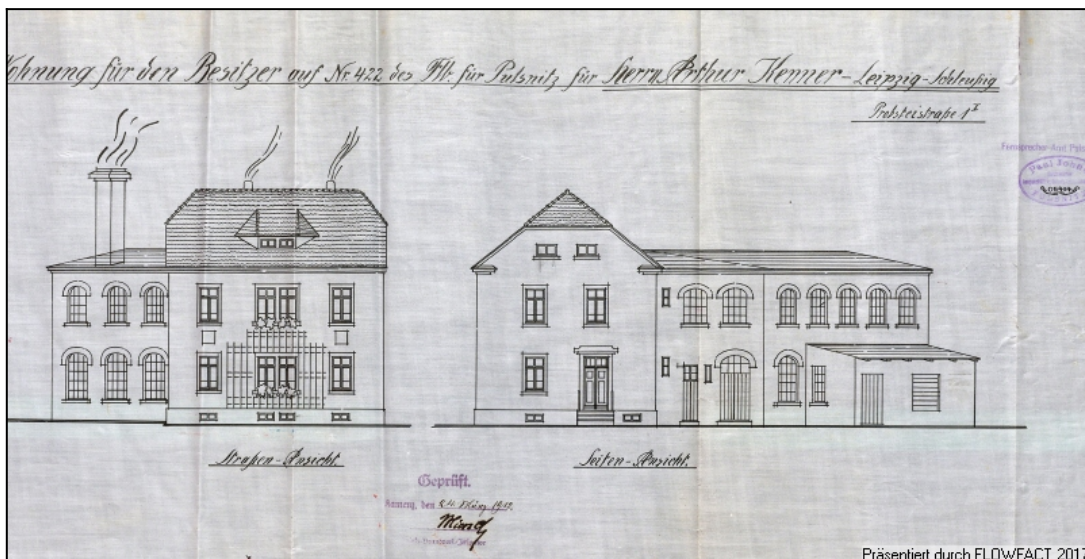 Wohnung für den Besitzer auf Nr. 422 des Flb. für Pulsnitz für Herrn Arthur Kenner - Leipzig-Schleußig
Probsteistraße 1 I
Fernsprecher Amt
Paul Joh
Straßen-Ansicht.
Seiten-Ansicht.
Geprüft.
den 24. März
Präsentiert durch FLOWFACT 201